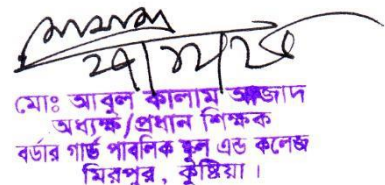 মোঃ আবুল কালাম আজাদ
অধ্যক্ষ/প্রধান শিক্ষক
বর্ডার গার্ড পাবলিক স্কুল এন্ড কলেজ
মিরপুর, কুষ্টিয়া।